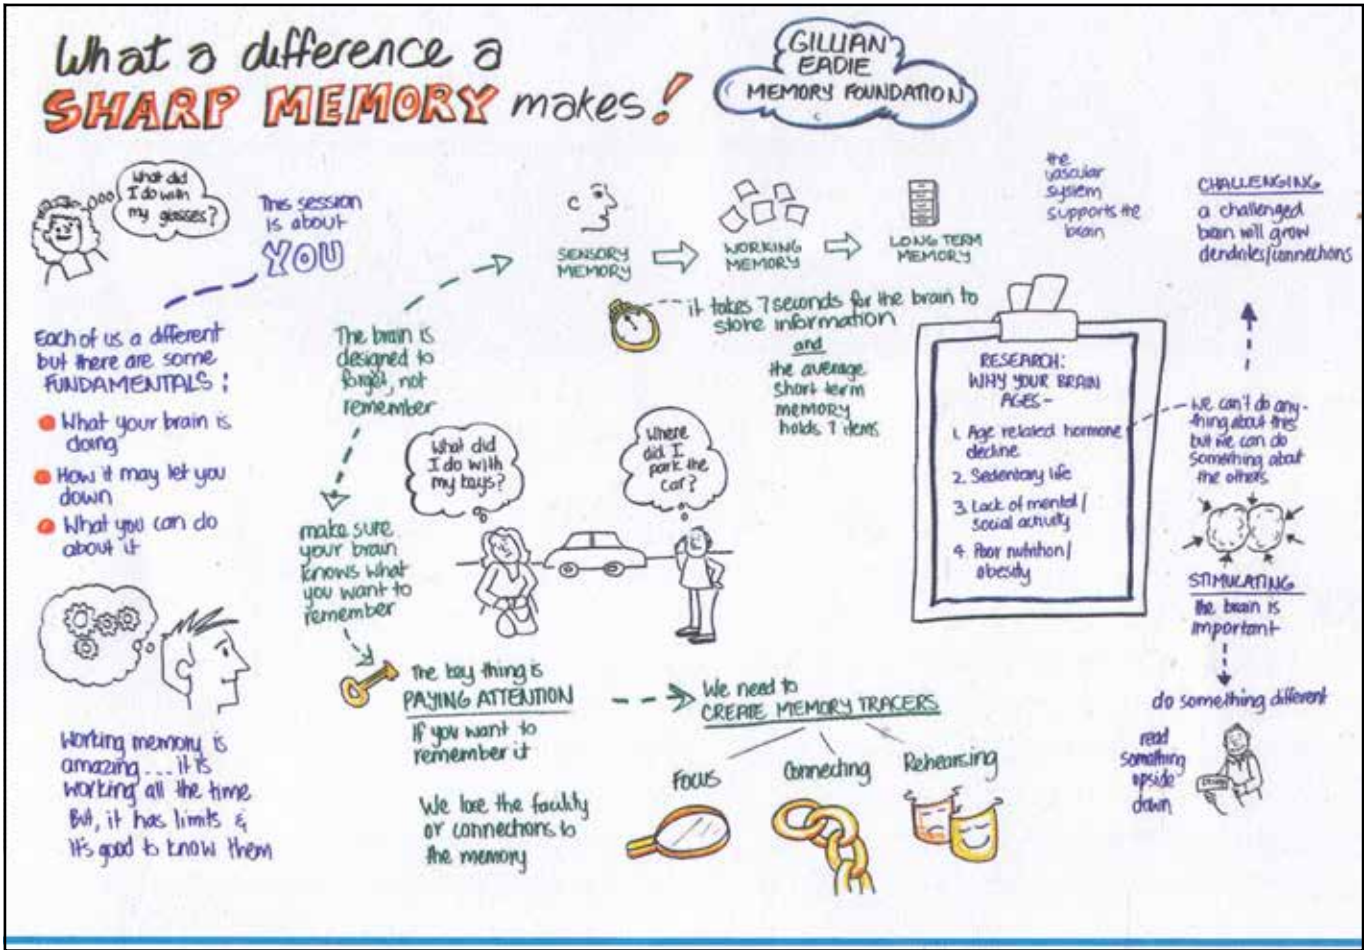 What a difference a
SHARP MEMORY makes!
GILLIAN
EADIE
MEMORY FOUNDATION
What did
I do with
my glasses?
This session
is about
YOU
Each of us a different
but there are some
FUNDAMENTALS:
What your brain is
doing
How it may let you
down
What you can do
about it
Working memory is
amazing... it is
working all the time
But, it has limits &
it's good to know them
The brain is
designed to
forget, not
remember
make sure
your brain
knows what
you want to
remember
SENSORY
MEMORY
WORKING
MEMORY
LONG TERM
MEMORY
it takes 7 seconds for the brain to
store information
and
the average
short term
memory
holds 7 items
What did
I do with
my keys?
Where
did I
park the
car?
The key thing is
PAYING ATTENTION
If you want to
remember it
We lose the facility
or connections to
the memory
We need to
CREATE MEMORY TRACERS
Focus
Connecting
Rehearsing
the
vascular
system
supports the
brain
RESEARCH:
WHY YOUR BRAIN
AGES-
1. Age related hormone
decline
2. Sedentary life
3. Lack of mental/
social activity
4. Poor nutrition/
obesity
CHALLENGING
a challenged
brain will grow
dendrites/connections
we can't do any-
thing about this
but we can do
something about
the others
STIMULATING
the brain is
important
do something different
read
something
upside
down